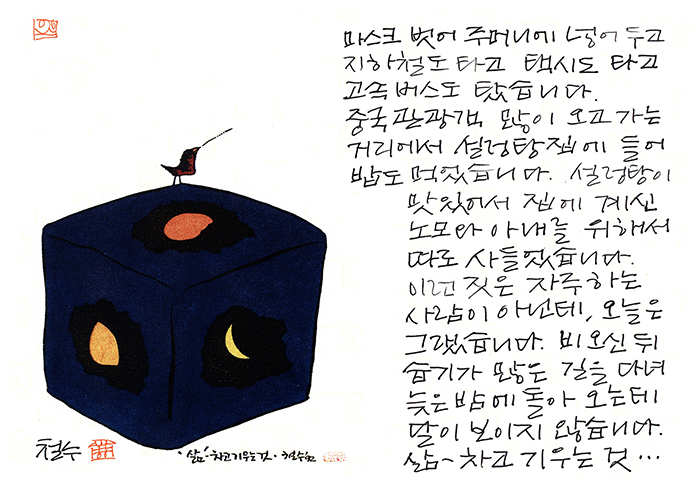 마스크 벗어 주머니에 넣어 두고
지하철도 타고 택시도 타고
고속버스도 탔습니다.
중국관광객 많이 오고 가는
거리에서 설렁탕집에 들어
밥도 먹었습니다. 설렁탕이
맛있어서 집에 계신
노모와 아내를 위해서
따로 사들었습니다.
이런 짓은 자주하는
사람이 아닌데, 오늘은
그랬습니다. 비 오신 뒤
습기가 많은 길을 다녀
늦은 밤에 돌아 오는데
달이 보이지 않습니다.
삶~ 차고 기우는 것 …
철수
'삶'~차고 기우는 것 · 철수